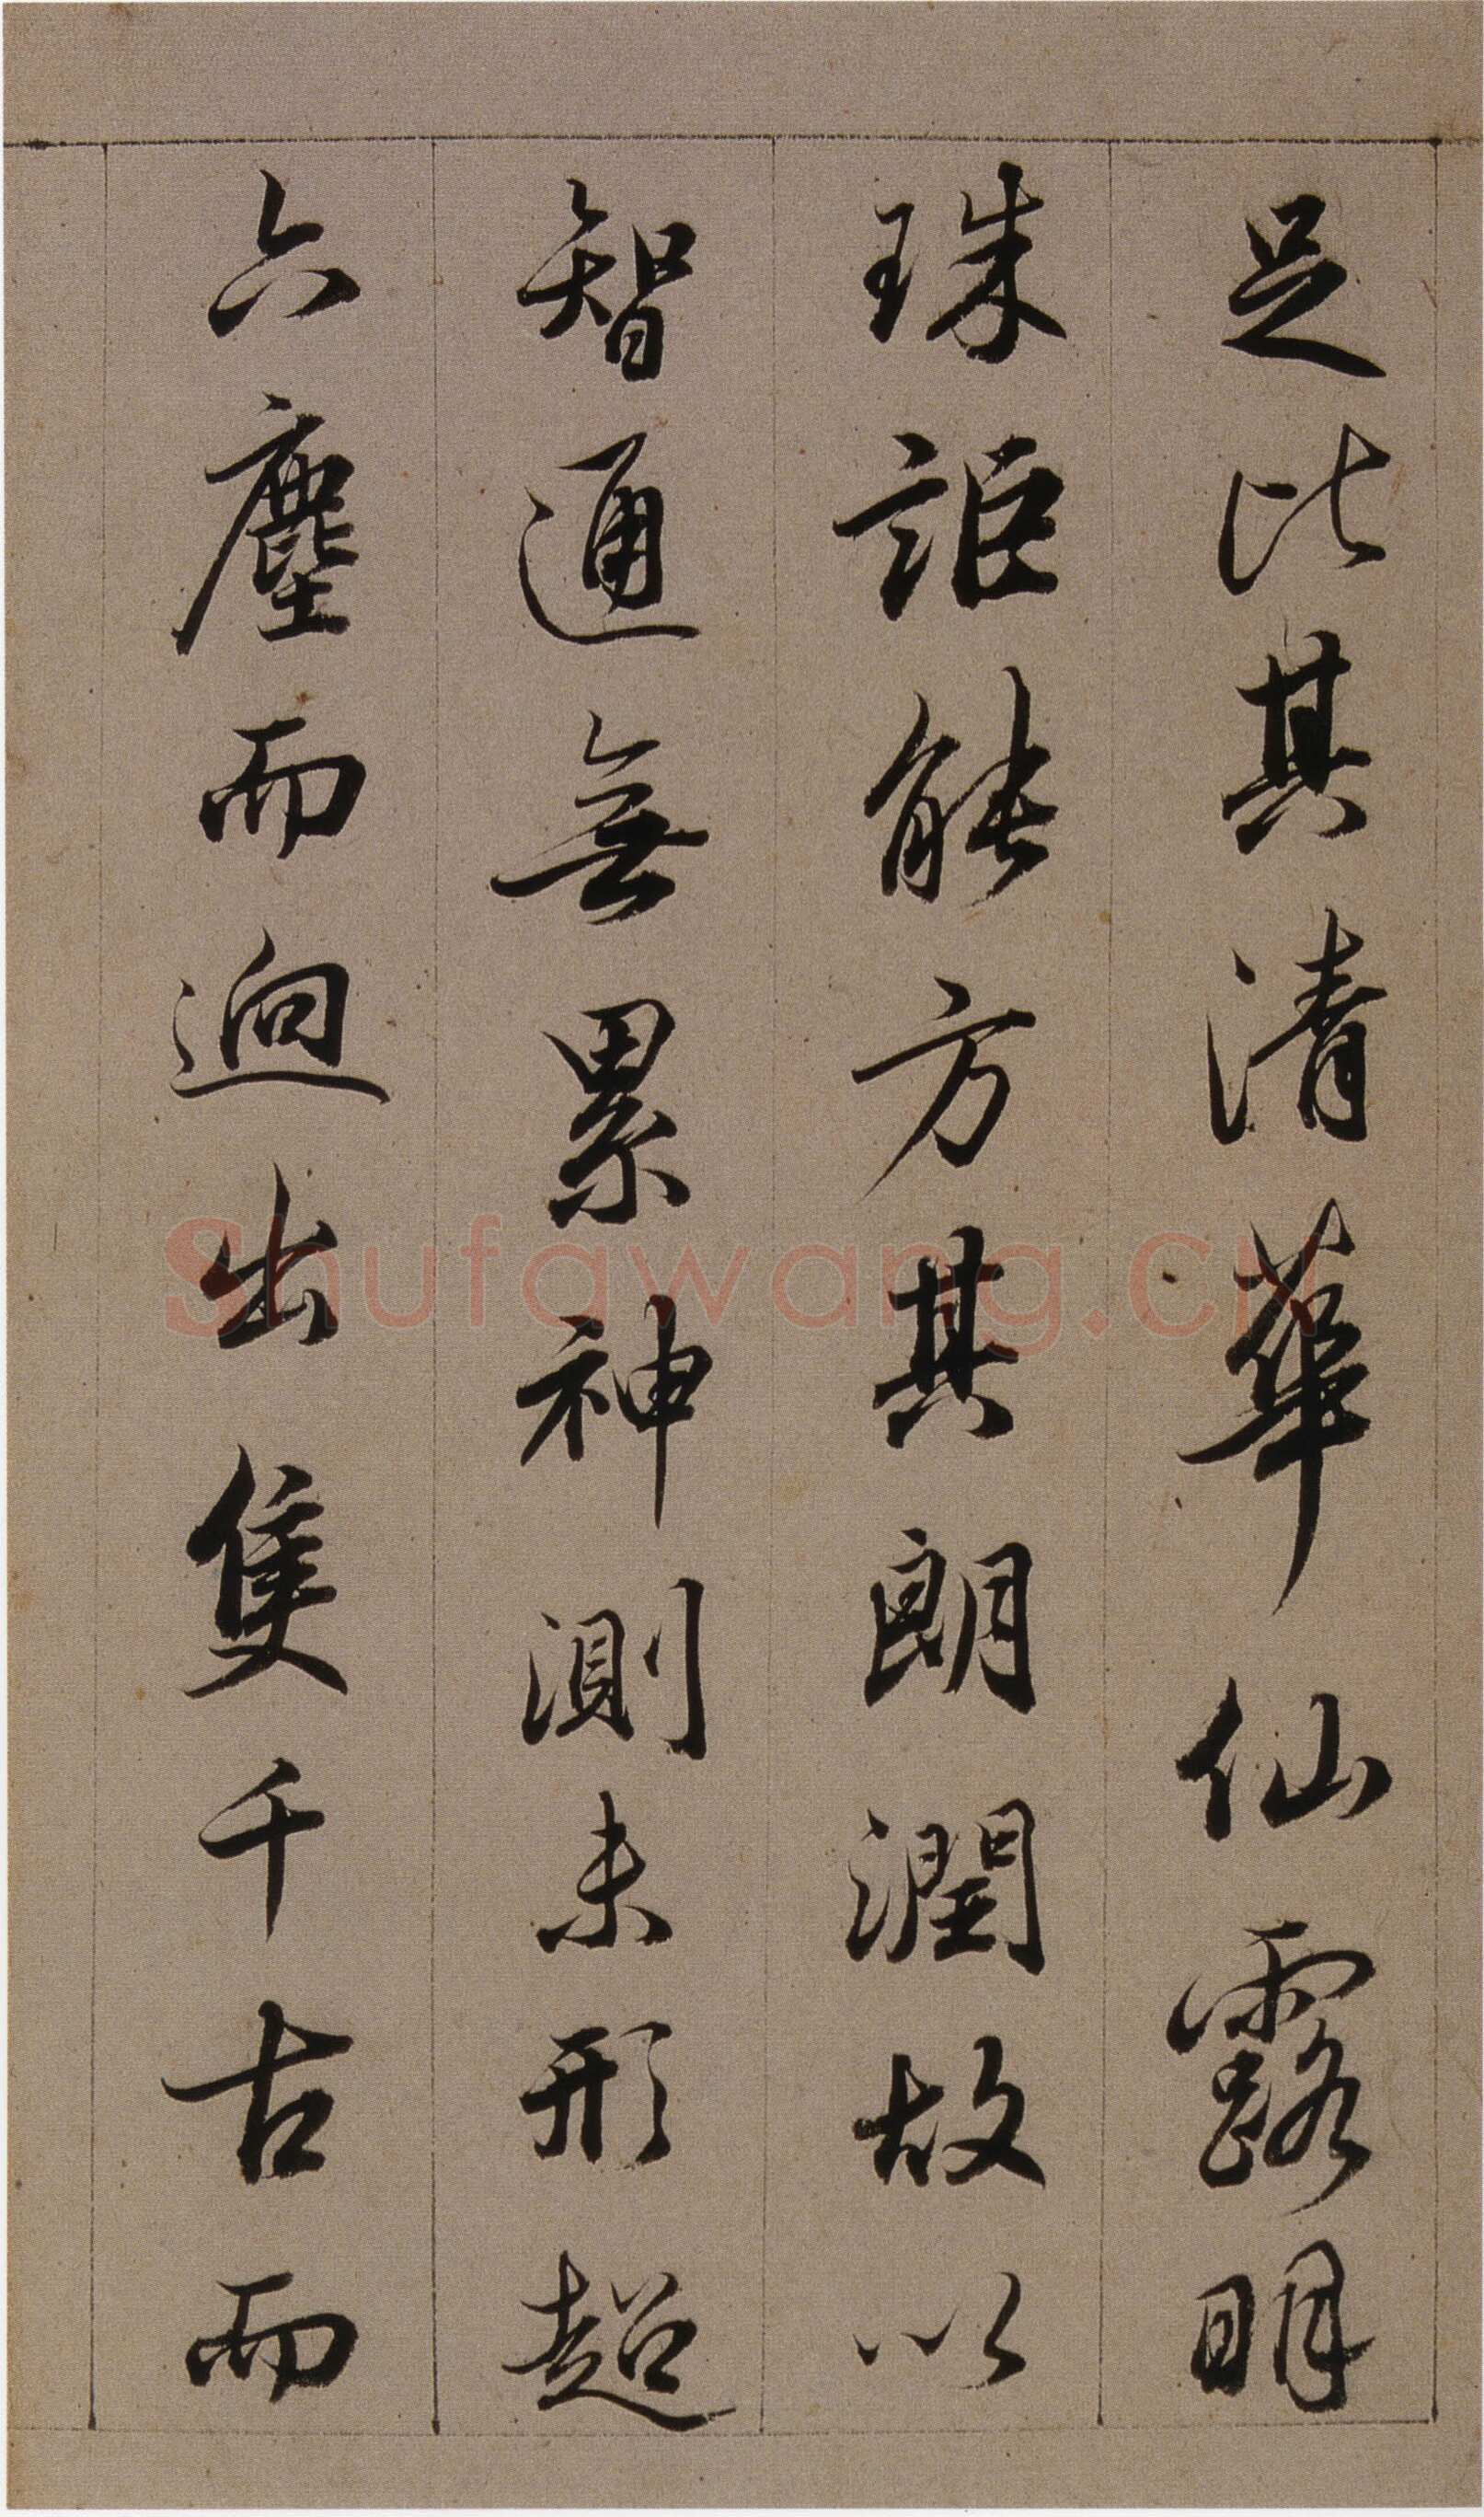 足比其清華仙露明
珠詎能方其朗潤故以
智通無累神測未形超
六塵而迥出隻千古而
Shufawang.cn